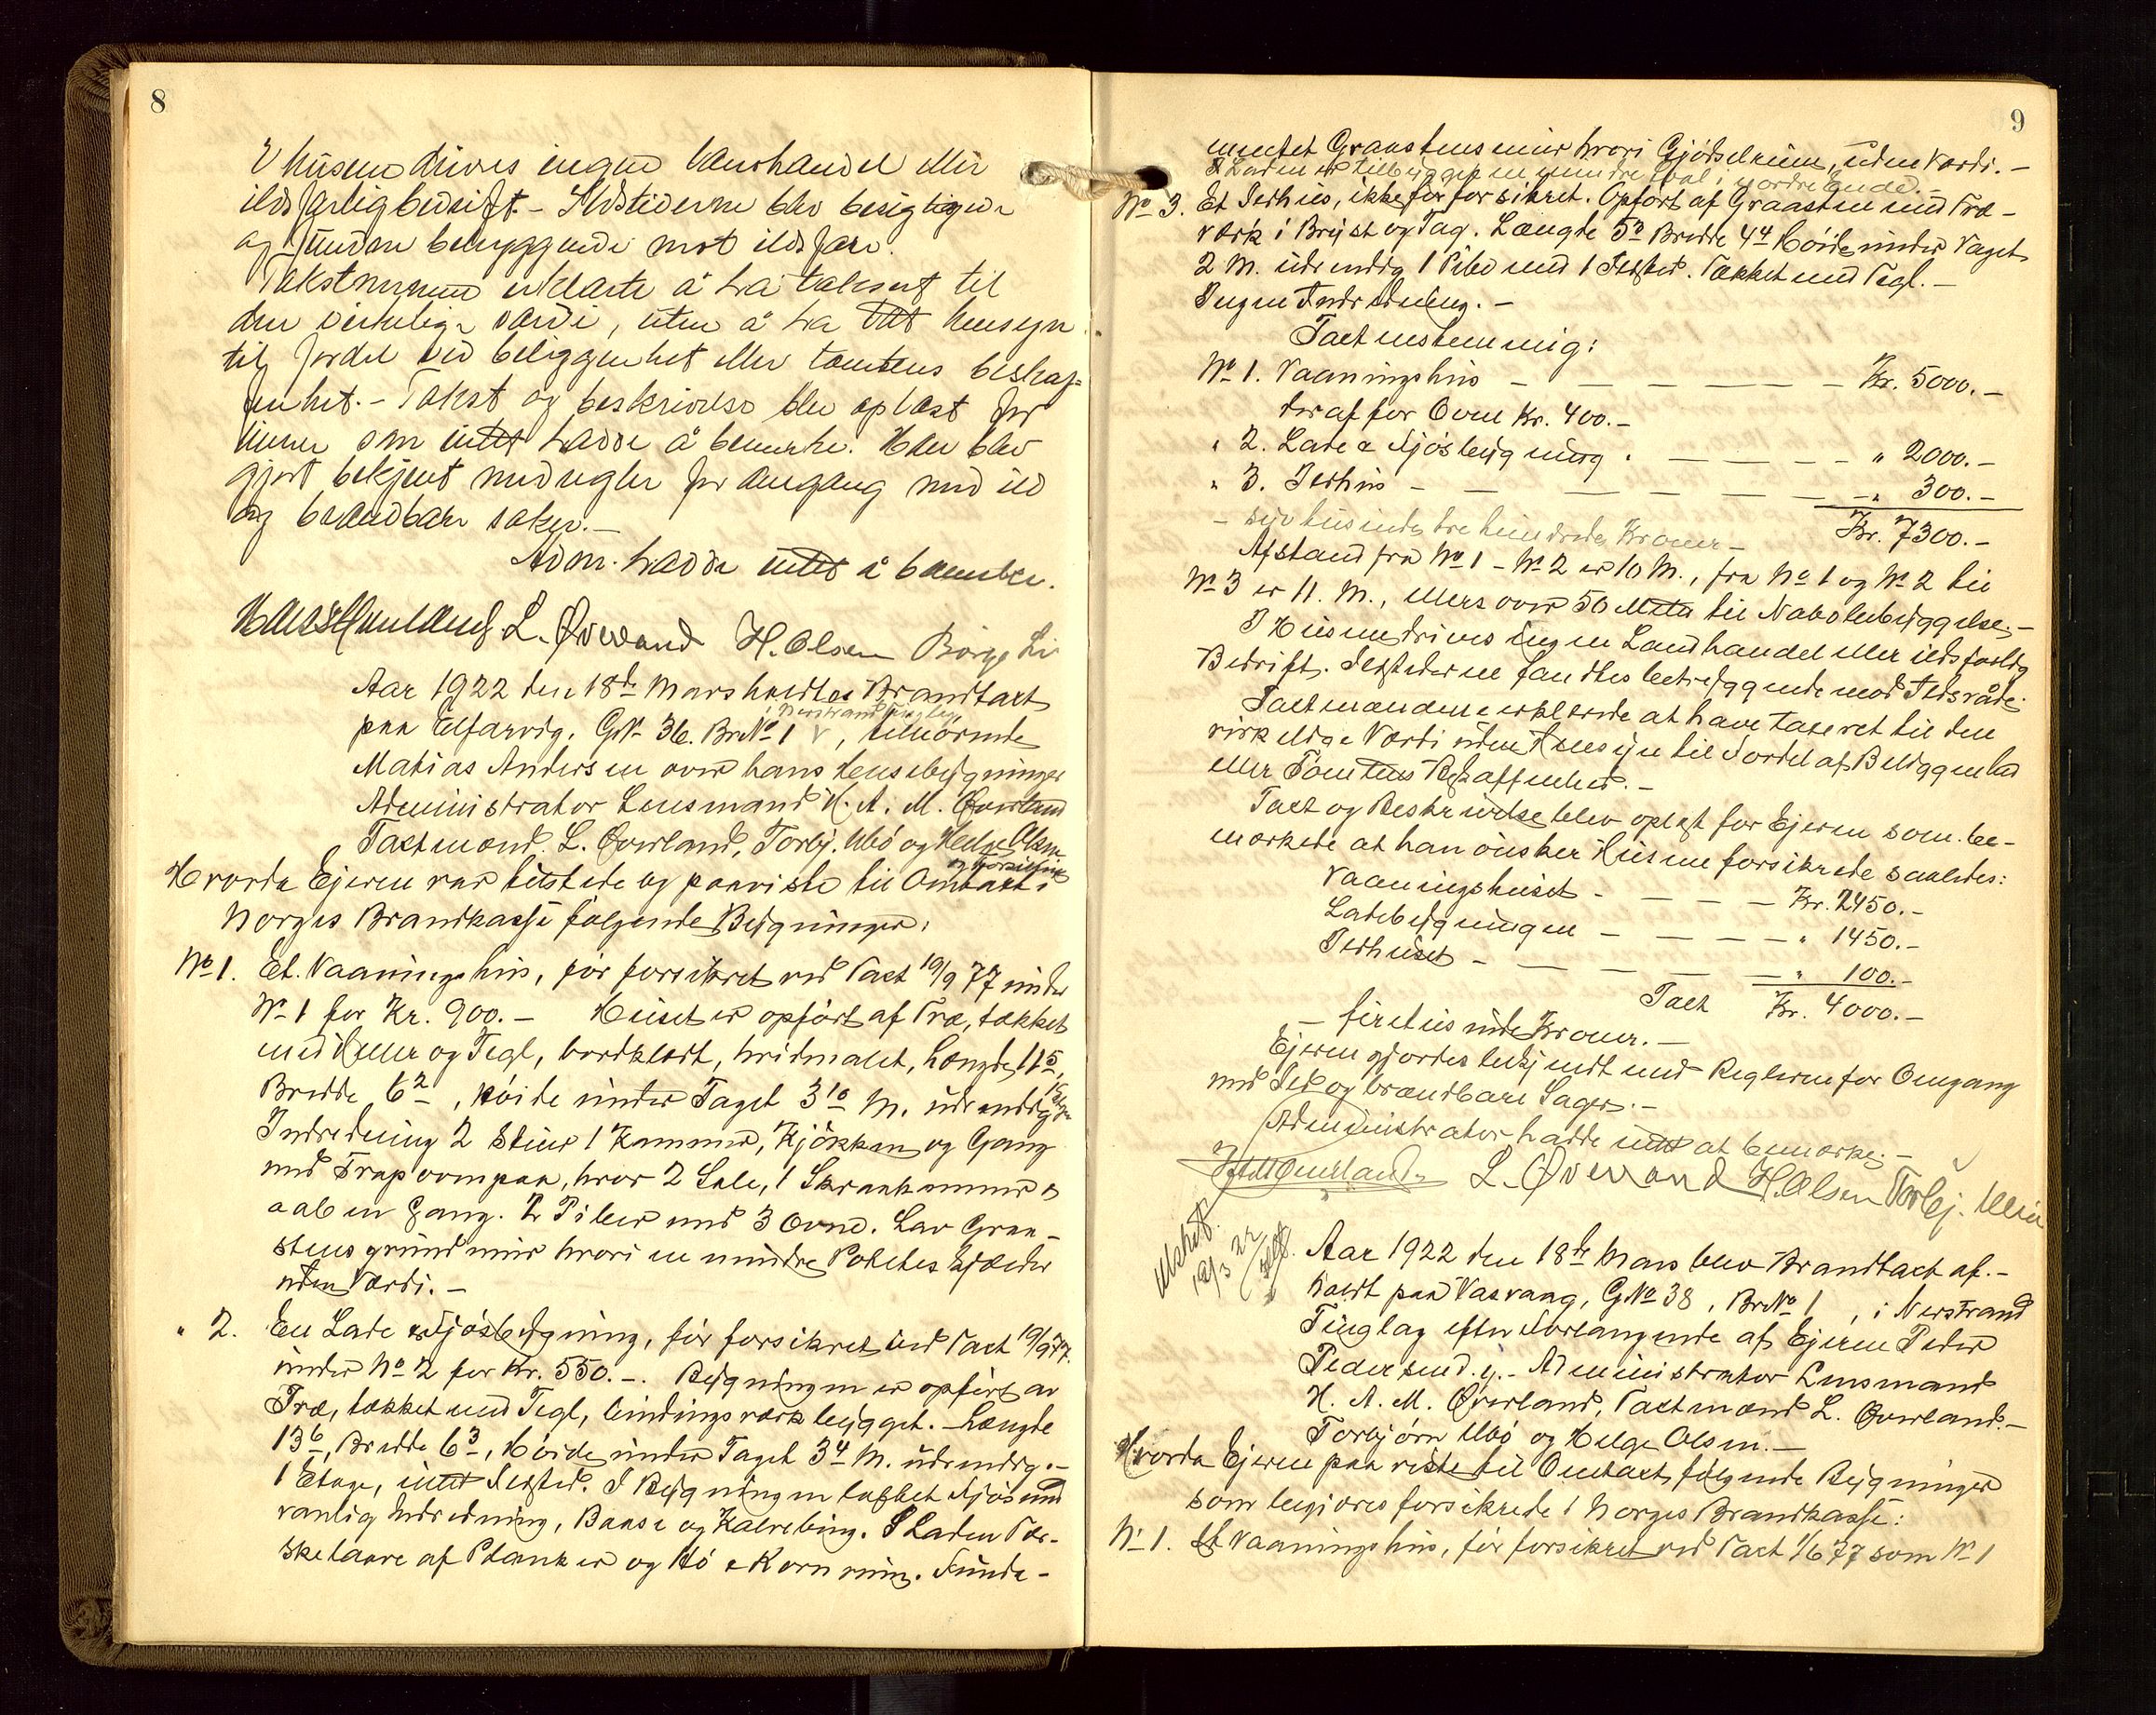 8
I husene drives ingen landhandel eller
ildsfarlig bedrift. - Ildstederne blev besigtiget
og funden betryggende mot ildsfare.
Takstmennene erklærte å ha taksert til
den virkelige værdi, uten å ha tat hensyn
til fordel ved beliggenhet eller tomtens beskaf-
fenhet. - Takst og beskrivelse blev oplæst for
eieren som intet hadde å bemerke. Han blev
gjort bekjent med regler for omgang med ild
og brændbare saker. -
Adm. hadde intet å bemerke.
L. Øverland H. Olsen Børge Li
Aar 1922 den 18de Mars holdtes Brandtaxt
i Nerstrand Tinglag
paa Elfarvig, GNo 36. BrNo 1 v, tilhørende
Matias Andersen over hans Husebygninger
Administrator Lensmand H. A. M. Øverland
Taxtmænd. L. Øverland, Torbj. Ubø og Helge Olsen
Hvorda Ejeren var tilstede og paaviste til Omtaxt i
og Forsikring
Norges Brandkasse følgende Bygninger:
No 1. Et Vaaningshus, før forsikret ved Taxt 19/9 77 under
No 1 for Kr. 900.- Huset er opført af Træ, tækket
med Heller og Tegl, bordklædt, hvidmalet, Længde 11 5,
Bredde 6 2, Høide under Taget 3 10 M. udvendig 1 Etage
Indredning 2 Stuer 1 Kammer, Kjøkken og Gang
med Trap ovenpaa, hvor 2 Sale, 1 Skraakammer &
aaben Gang. 2 Piber med 3 Ovne. Lav Graa-
stensgrundmur hvori en mindre Potetes Kjælder
uden Værdi. -
" 2. En Lade & Fjøsbygning, før forsikret ved Taxt 19/9 77.
under No 2 for Kr. 550.-. Bygningen er opført av
Træ, tækket med Tegl, bindingsværk bygget. - Længde
13 6, Bredde 6 3, Høide under Taget 3 4 M. udvendig. -
1 Etage, intet Ildsted. I Bygningen Fjøs med
vanlig Indredning, Baase og Kalvebing. I Laden Tær-
skelaave af Planker og Hø & Korn rum. Funda-
9
mentet Graastensmur hvori Gjødselrum, uden Værdi. -
I Laden er tilbygget en mindre Sval i nordre Ende. -
No 3. Et Ildhus, ikke før forsikret. Opført af Graasten med Træ-
værk i Bryst og Tag. Længde 5 0 Bredde 4 4 Høide under Taget
2 M. udvendig 1 Pibe med 1 Ildsted. Tækket med Tegl. -
Ingen Indredning. -
Taxt nstemmig:
No 1. Vaaningshus - - - - - - Kr. 5000.-
deraf for Ovne Kr. 400.-
" 2. Lade & Fjøsbygning . - - - - " 2000.-
" 3. Ildhus - - - - - - - " 300.-
- syv tusinde tre hundrede Kroner - Kr. 7300.-
Afstand fra No 1 - No 2 er 10 M., fra No 1 og No 2 til
No 3 er 11. M., ellers over 50 Meter til Nabobebyggelse. -
I Husene drives ingen Landhandel eller ildsfarlig
Bedrift. Ildstederne fandtes betryggende mod Ildsvåde.
Taxtmændene erklærede at have taxeret til den
virkelige Værdi uden Hensyn til Fordel af Beliggenhed
eller Tomtens Beskaffenhed. -
Taxt og Beskrivelse blev oplæst for Ejeren som be-
mærkede at han ønsker Husene forsikrede saaledes:
Vaaningshuset - - - - Kr. 2450.-
Ladebygningen - - - - " 1450.-
Ildhuset - - - - - - " 100.-
Taxt Kr. 4000.-
- firetusinde Kroner. -
Ejeren gjordes bekjendt med Reglerne for Omgang
med Ild og brændbare Sager. -
Administrator hadde intet at bemærke. -
H.A.M. Øverland. L. Øverland H. Olsen Torbj. Ubø
Utskr.
19/3 22
Aar 1922 den 18de Mars blev Brandtaxt af-
holdt paa Vasvaag, GNo 38, BrNo 1, i Nerstrand
Tinglag efter Forlangende af Ejeren Peder
Pedersen d. y. - Administrator Lensmand
H. A. M. Øverland, Taxtmænd L. Øverland. -
Torbjørn Ubø og Helge Olsen. -
Hvorda Ejeren paaviste til Omtaxt følgende Bygninger
som begjæres forsikrede i Norges Brandkasse:
No 1. Et Vaaningshus, før forsikret ved Taxt 1/6 77 som No 1